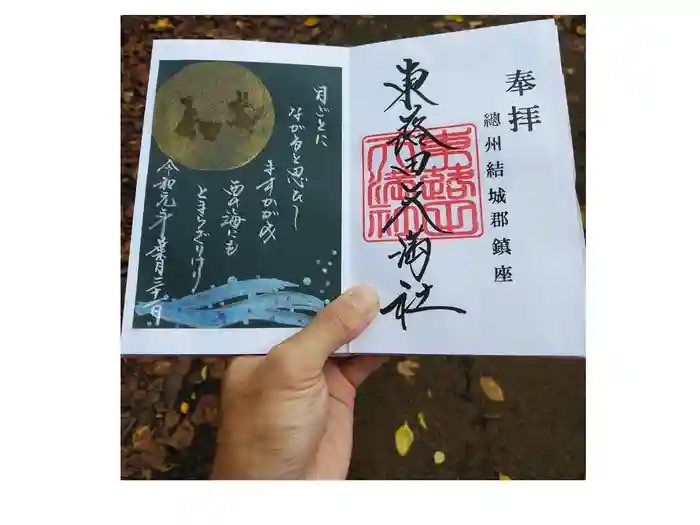 奉拝
總州結城郡鎮座
東蕗田天満社
東蕗田天満社
月ごとに
ながると思ひし
ますかがみ
西の海にも
とまらざりけり
令和元年葉月二十一日